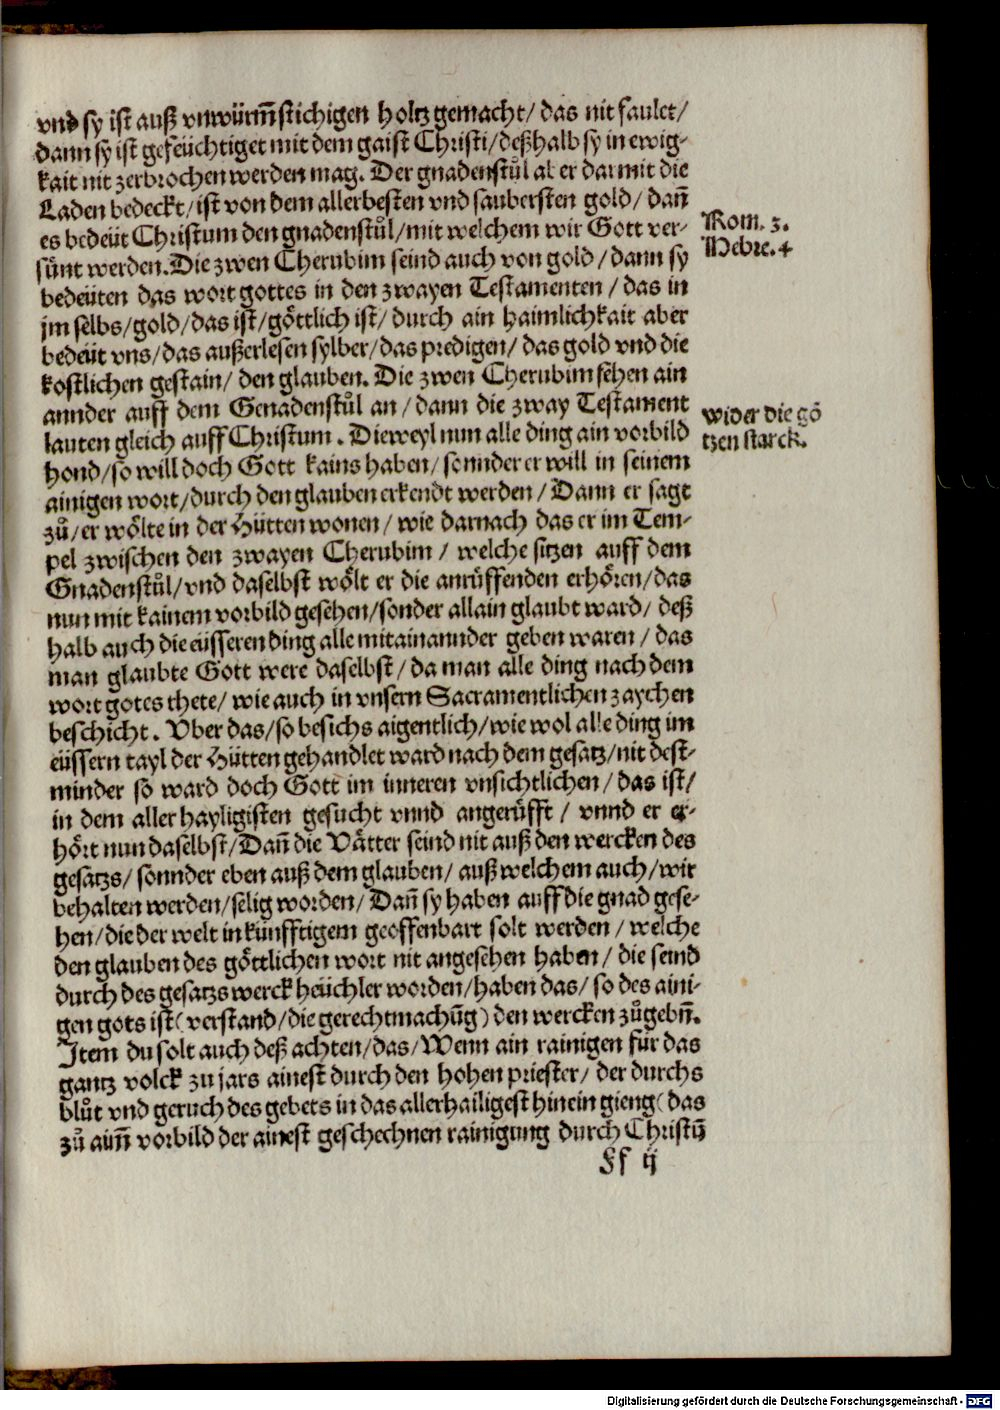 vnd sy ist auß vnwürm̃stichigen holtz gemacht/ das nit faulet/
dann sy ist gefeüchtiget mit dem gaist Christi/deßhalb sy in ewig-
kait nit zerbrochen werden mag. Der gnadenstůl aber darmit die
Laden bedeckt/ist von dem allerbesten vnd saubersten gold/ dañ
es bedeüt Christum den gnadenstůl/mit welchem wir Gott ver-
sůnt werden.Die zwen Cherubim seind auch von gold/dann sy
bedeüten das wort gottes in den zwayen Testamenten/das in
jm selbs/gold/das ist/göttlich ist/durch ain haimlichkait aber
bedeüt vns/das außerlesen sylber/das predigen/das gold vnd die
kostlichen gestain/ den glauben. Die zwen Cherubim sehen ain
annder auff dem Genadenstůl an/dann die zway Testament
lauten gleich auff Christum. Dieweyl nun alle ding ain vorbild
hond/so will doch Gott kains haben/sonnder er will in seinem
ainigen wort/durch den glauben erkendt werden/Dann er sagt
zů/er wölte in der Hütten wonen/wie darnach das er im Tem-
pel zwischen den zwayen Cherubim/ welche sitzen auff dem
Gnadenstůl/vnd daselbst wölt er die anrüffenden erhören/das
nun mit kainem vorbild gesehen/sonder allain glaubt ward/ deß
halb auch die eüsseren ding alle mitainannder geben waren/das
man glaubte Gott were daselbst/da man alle ding nach dem
wort gotes thete/wie auch in vnsern Sacramentlichen zaychen
beschicht. Vber das/so besichs aigentlich/wie wol alle ding im
eüssern tayl der Hütten gehandlet ward nach dem gesatz/nit dest-
minder so ward doch Gott im inneren vnsichtlichen/das ist/
in dem aller hayligisten gesucht vnnd angerüfft/ vnnd er er-
hört nun daselbst/Dañ die Vätter seind nit auß den wercken des
gesatzs/sonnder eben auß dem glauben/auß welchem auch/wir
behalten werden/selig worden/Dañ sy haben auff die gnad gese-
hen/die der welt in künfftigem geoffenbart solt werden/welche
den glauben des göttlichen wort nit angesehen haben/die seind
durch des gesatzs werck heüchler worden/haben das/so des aini-
gen gots ist(verstand/die gerechtmachūg) den wercken zůgebñ.
Item du solt auch deß achten/das/Wenn ain rainigen für das
gantz volck zu jars ainest durch den hohen priester/der durchs
blůt vnd geruch des gebets in das allerhailigest hinein gieng(das
zů aim̃ vorbild der ainest geschechnen rainigung durch Christū
Ff ij
Rom. 3.
Hebre. 4
Wider die gö
tzen starck.
Digitalisierung gefördert durch die Deutsche Forschungsgemeinschaft - DFG